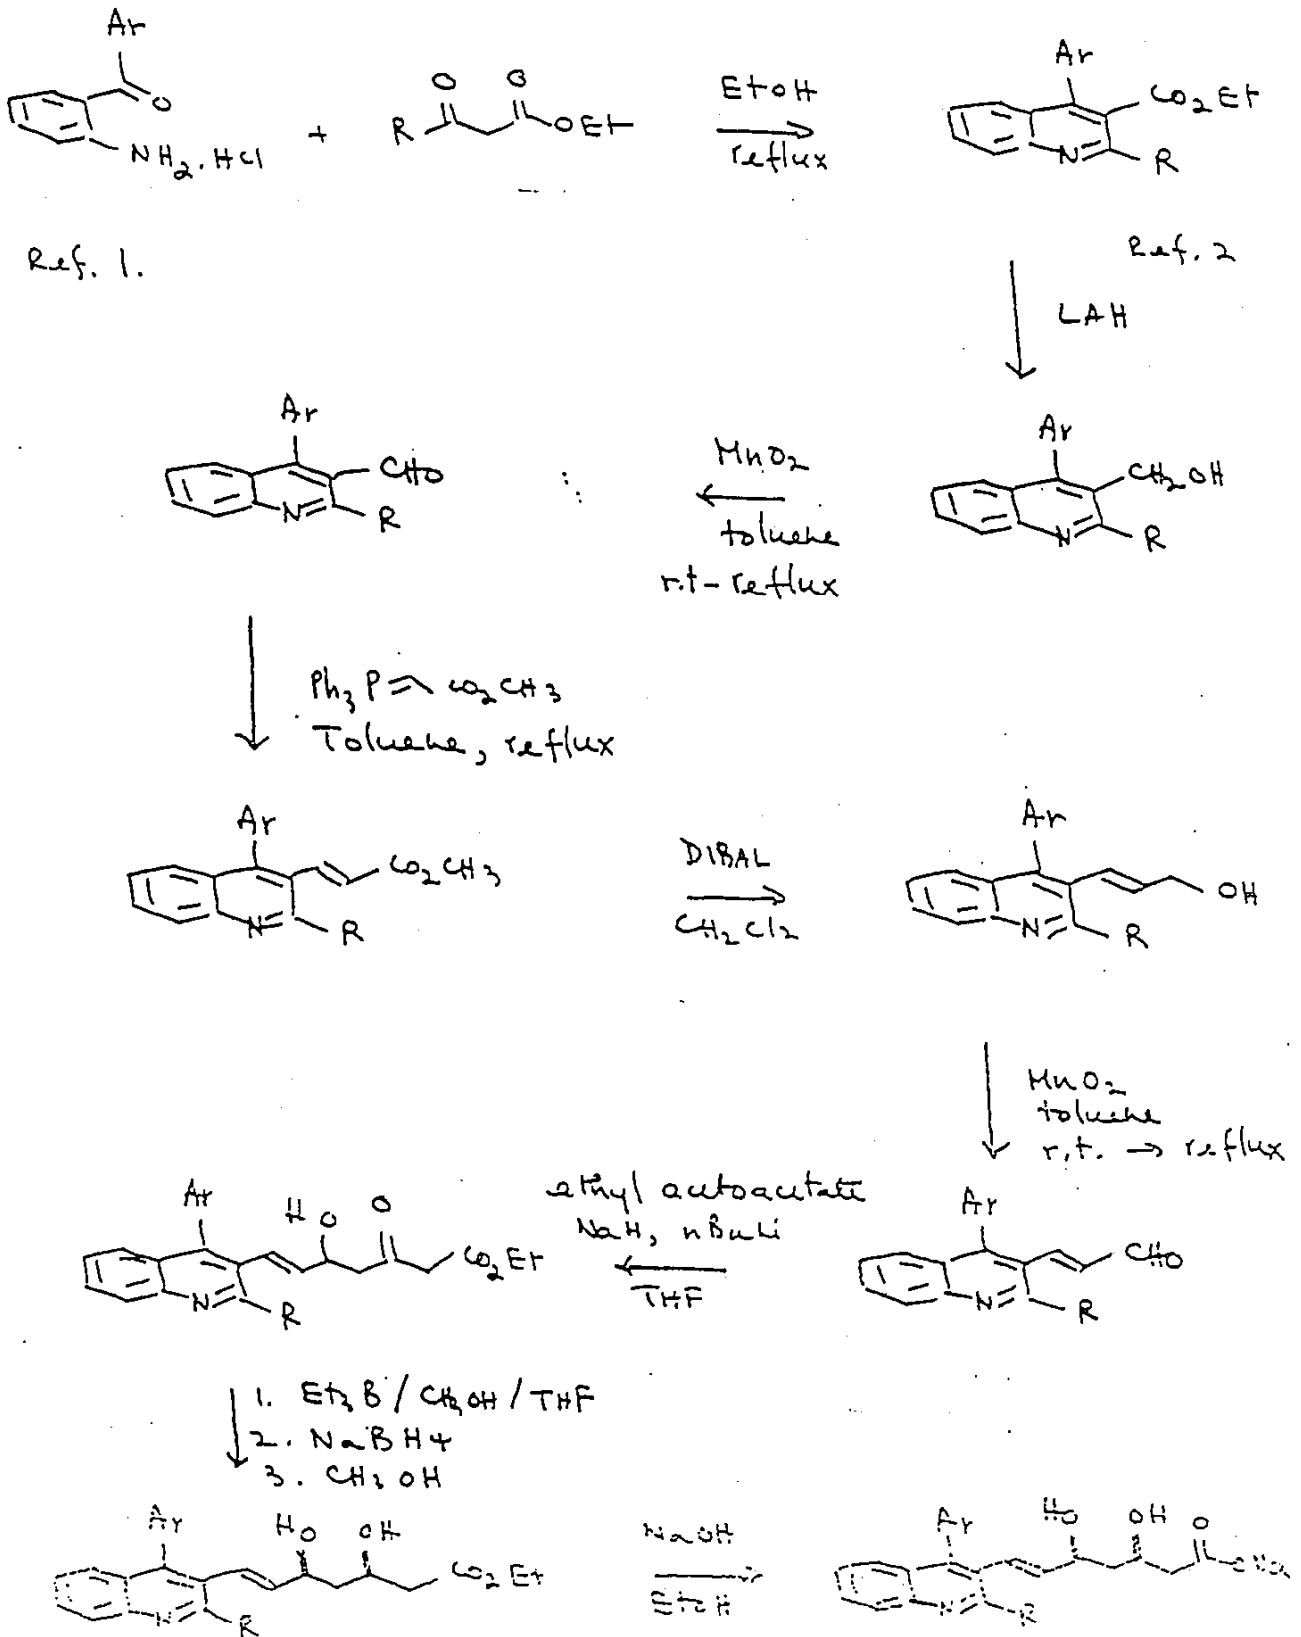 Ar
O
NH2.HCl
+
R O O OEt
EtOH
reflux
Ar
CO2Et
N R
Ref. 1.
Ref. 2
LAH
Ar
CHO
N R
MnO2
toluene
r.t-reflux
Ar
CH2OH
N R
Ph3P= CO2CH3
Toluene, reflux
Ar
CO2CH3
N R
DIBAL
CH2Cl2
Ar
OH
N R
MnO2
toluene
r.t. → reflux
Ar
HO O
CO2Et
N R
ethyl acetoacetate
NaH, nBuLi
THF
Ar
CHO
N R
1. Et3B / CH3OH / THF
2. NaBH4
3. CH3OH
Ar HO OH
CO2Et
N R
NaOH
EtOH
Ar HO OH O
ONa
N R